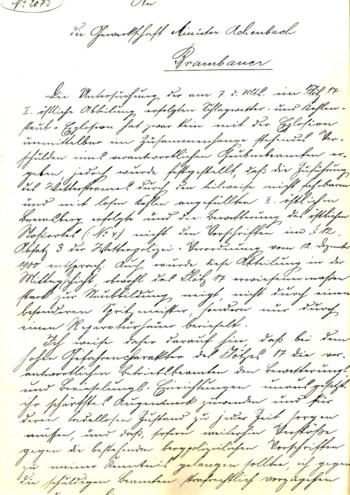 No 2083 An
die Gewerkschaft Minister Achenbach
Brambauer
Die Untersuchung der am 7. d. Mts. im Flötz 17
I. östliche Abteilung erfolgten Schlagwetter- und Kohlen-
staub-Explosion hat zwar kein mit der Explosion
unmittelbar im Zusammenhange stehendes Ver-
schulden eines verantwortlichen Grubenbeamten er-
geben, jedoch wurde festgestellt, daß die Zuführung
des Wetterstromes durch den teilweise nicht fahrbaren
und mit losen Kohlen angefüllten 3. östlichen
Bremsberg erfolgte und die Bewetterung des östlichen
Vorschriften im §
Absatz 3 der Wetterpolizei-Verordnung vom 12. Dezember
1900 entsprach. Auch wurde diese Abteilung in der
Mittagschicht, obwohl das Flötz 17 erwiesenermaßen
stark zur Staubbildung neigt, nicht durch einen
besonderen Spritzmeister, sondern nur durch
einen Reparaturhauer berieselt.
Ich weise daher darauf hin, daß bei dem
hohen Gefahrencharakter des Flötzes 17 die ver-
antwortlichen Betriebsbeamten den Bewetterungs-
und Berieselungs-Einrichtungen unausgesetzt
ihr schärfstes Augenmerk zuwenden und für
deren tadellosen Zustand zu jeder Zeit sorgen
müssen, und daß, sofern weiterhin Verstöße
gegen die bestehenden bergpolizeilichen Vorschriften
zu meiner Kenntnis gelangen sollten, ich gegen
die schuldigen Beamten strafrechtlich vorzugehen